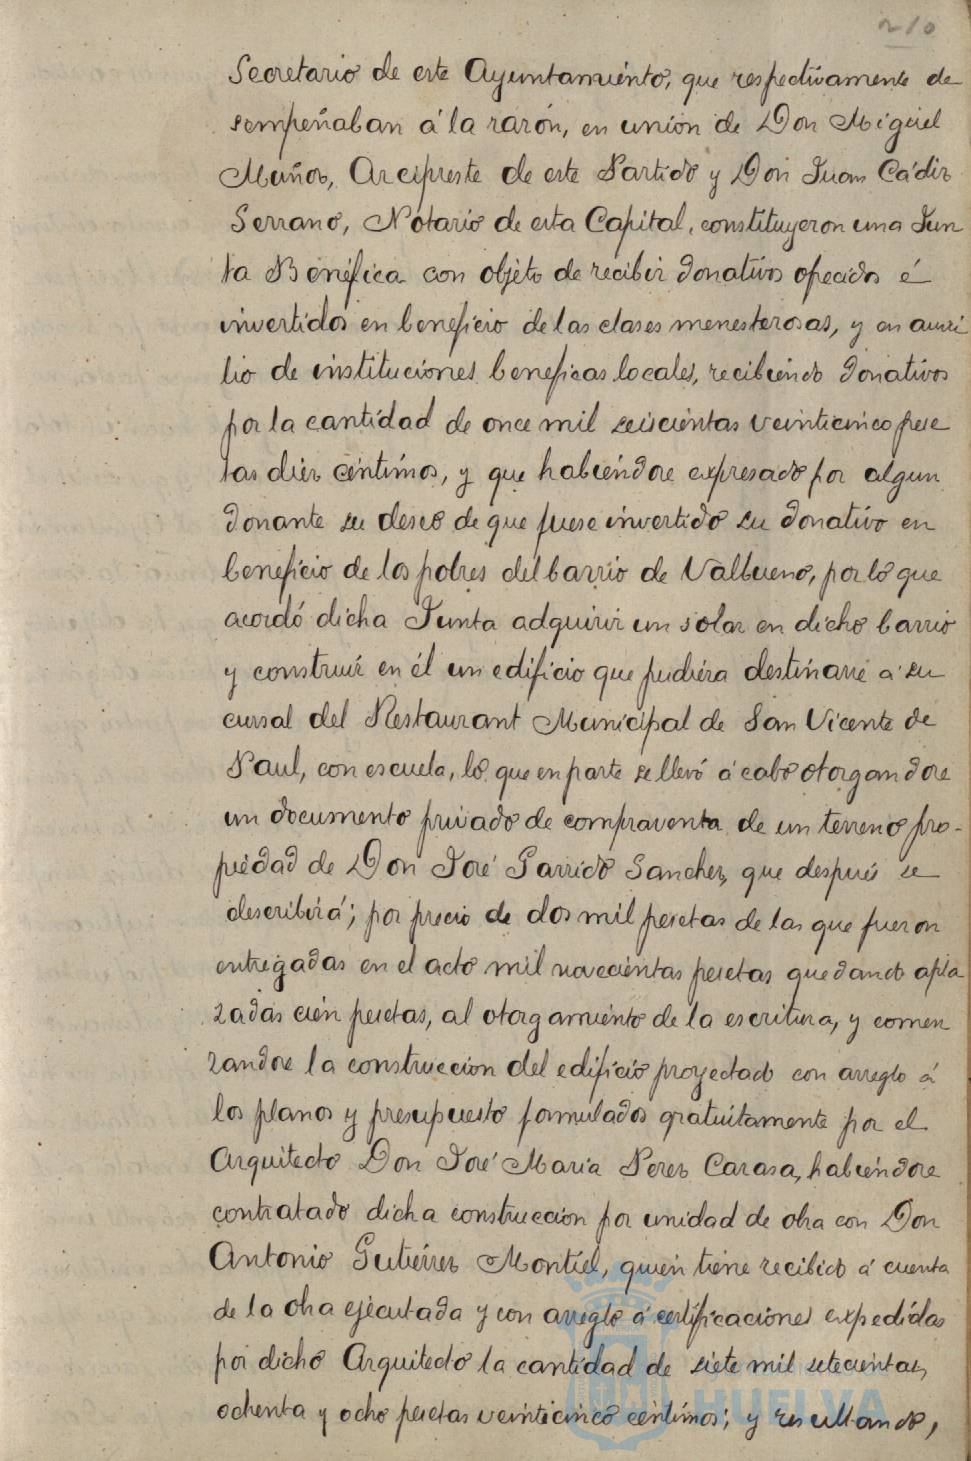 210
Secretario de este Ayuntamiento, que respectivamente de
sempeñaban á la razón, en unión de Don Miguel
Muñoz, Arcipreste de este Partido y Don Juan Cádiz
Serrano, Notario de esta Capital, constituyeron una Jun
ta Benéfica con objeto de recibir donativos ofrecidos é
invertidos en beneficio de las clases menesterosas, y en auxi
lio de instituciones beneficas locales, recibiendo donativos
por la cantidad de once mil seiscientas veinticinco pese
tas diez céntimos, y que habiéndose expresado por algun
donante su deseo de que fuese invertido su donativo en
beneficio de los pobres del barrio de Valbueno, por lo que
acordó dicha Junta adquirir un solar en dicho barrio
y construir en él un edificio que pudiera destinarse a su
cursal del Restaurant Municipal de San Vicente de
Paul, con escuela, lo que en parte se llevó á cabo otorgandose
un documento privado de compraventa de un terreno pro-
piedad de Don José Garrido Sanchez, que después se
describirá; por precio de dos mil pesetas de las que fueron
entregadas en el acto mil novecientas pesetas quedando apla
zadas cien pesetas, al otorgamiento de la escritura, y comen
zandose la construccion del edificio proyectado con arreglo á
los planos y presupuesto formulados gratuitamente por el
Arquitecto Don José Maria Perez Carasa, habiéndose
contratado dicha construccion por unidad de obra con Don
Antonio Gutiérrez Montiel, quien tiene recibido á cuenta
de la obra ejecutada y con arreglo á certificaciones expedidas
por dicho Arquitecto la cantidad de siete mil setecientas,
ochenta y ocho pesetas veinticinco céntimos; y resultando,
HUELVA